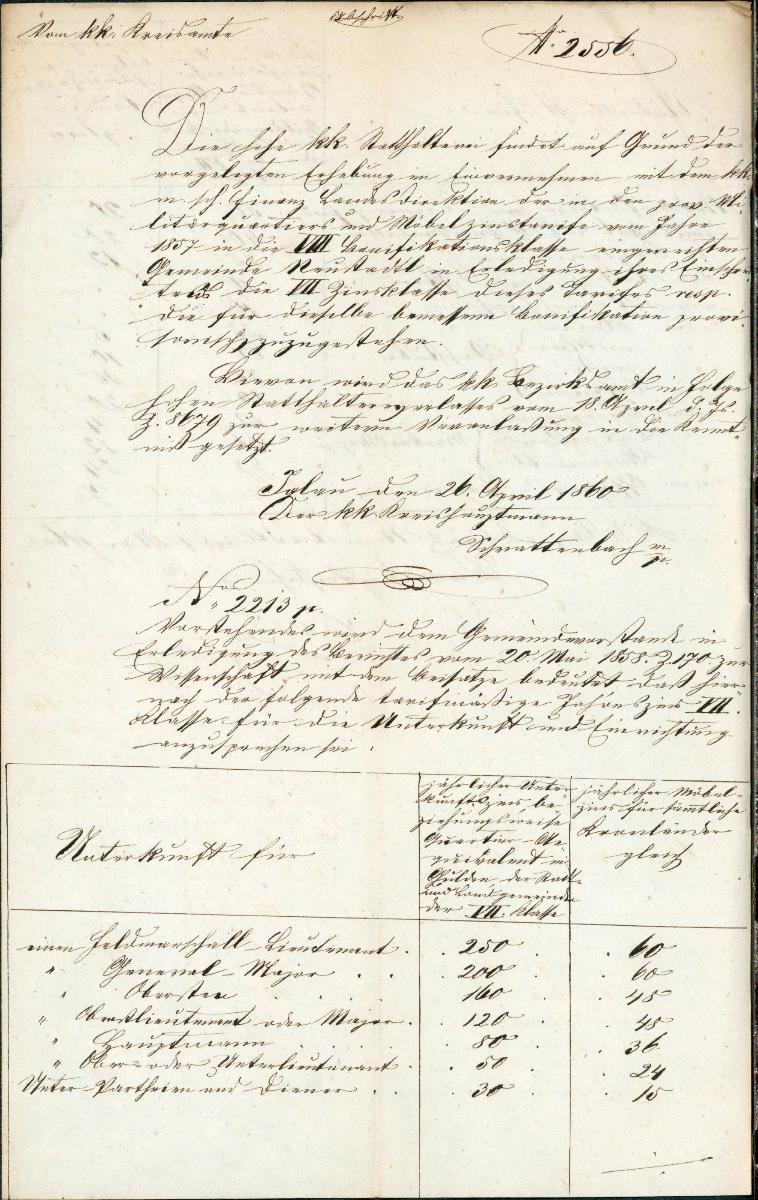 Vom kk. Kreisamte
Abschrift
N. 2556.
Die hohe kk. Statthalterei findet auf Grund der
vorgelegten Erhebung im Einvernehmen mit dem kk.
m. sch. Finanz Landesdirektion der in den prov. Mi-
litärquartiers und Möbelzinstarife vom Jahre
1857 in die VIII Bonifikationsklasse eingereihten
Gemeinde Neustadtl in Erledigung ihres Einschrei-
tens die VII Zinsklasse dieses Tarifes resp.
die für dieselbe bemessene Bonifikation provi-
sorisch zuzugestehen.
Hievon wird das kk. Bezirksamt in Folge
hohen Statthaltereierlasses vom 18. April d. Js.
Z. 8679 zur weitern Veranlaßung in die Kennt-
niß gesetzt.
Iglau den 26. April 1860
Der kk Kreishauptmann
Schrattenbach m/p.
Nro. 2213 p.
Vorstehendes wird dem Gemeindevorstande in
Erledigung des Berichtes vom 20. Mai 1858. Z. 170 zur
Wissenschaft mit dem Beisatze bedeutet daß hier-
nach der folgende tarifmäßige Jahreszins VII.
Klasse für die Unterkunft und Einrichtung
anzusprechen sei.
Unterkunft für
jährlicher Unter-
kunftszins, be-
ziehungsweise
Quartier-Ae-
quivalent in
Gulden der Stadt-
und Landgemeinden
der VII. Klasse
jährlicher Möbel-
zins für sämmtliche
Kronländer
gleich
einen Feldmarschall-Lieutenant . . 250 . . 60
" General-Major . . . 200 . . 60
" Obersten . . . 160 . . 48
" Oberstlieutenant oder Major . . 120 . . 48
" Hauptmann . . . 80 . . 36
" Ober- oder Unterlieutenant . . 50 . . 24
Unter-Partheien und Diener . . . 30 . . 15